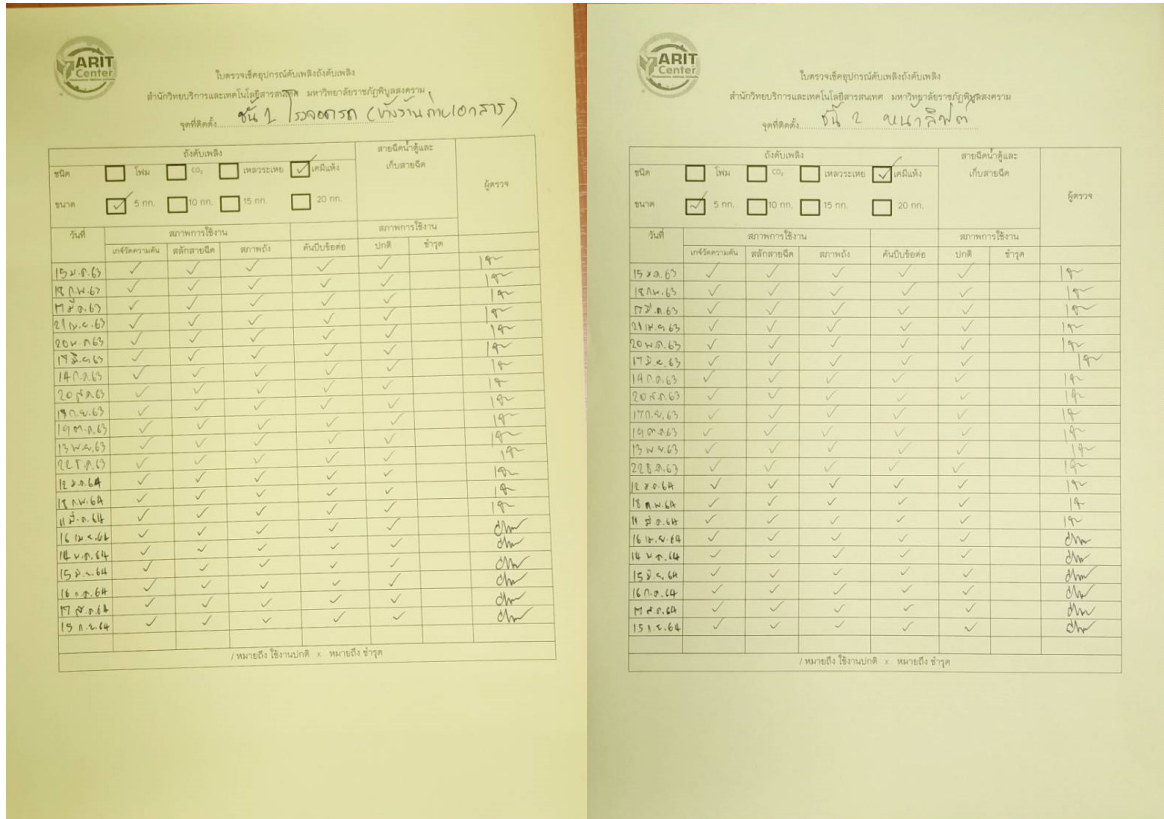 ARIT
Center
ใบตรวจเช็คอุปกรณ์ดับเพลิงถังดับเพลิง
สำนักวิทยบริการและเทคโนโลยีสารสนเทศ มหาวิทยาลัยราชภัฏพิบูลสงคราม
จุดที่ติดตั้ง ชั้น 1 โรงจอดรถ (ข้างร้านถ่ายเอกสาร)
ถังดับเพลิง สายฉีดน้ำตู้และ
ชนิด โฟม CO₂ เหลวระเหย ✓ เคมีแห้ง เก็บสายฉีด ผู้ตรวจ
ขนาด ✓ 5 กก. 10 กก. 15 กก. 20 กก.
วันที่ สภาพการใช้งาน สภาพการใช้งาน
เกจ์วัดความดัน สลักสายฉีด สภาพถัง คันบีบข้อต่อ ปกติ ชำรุด
15 ม.ค.63 ✓ ✓ ✓ ✓ ✓
18 ก.พ.63 ✓ ✓ ✓ ✓ ✓
17 มี.ค.63 ✓ ✓ ✓ ✓ ✓
21 เม.ย.63 ✓ ✓ ✓ ✓ ✓
20 พ.ค.63 ✓ ✓ ✓ ✓ ✓
17 มิ.ย.63 ✓ ✓ ✓ ✓ ✓
14 ก.ค.63 ✓ ✓ ✓ ✓ ✓
20 ส.ค.63 ✓ ✓ ✓ ✓ ✓
ก.ย.63 ✓ ✓ ✓ ✓ ✓
19 ต.ค.63 ✓ ✓ ✓ ✓ ✓
13 พ.ย.63 ✓ ✓ ✓ ✓ ✓
22 ธ.ค.63 ✓ ✓ ✓ ✓ ✓
12 ม.ค.64 ✓ ✓ ✓ ✓ ✓
18 ก.พ.64 ✓ ✓ ✓ ✓ ✓
11 มี.ค.64 ✓ ✓ ✓ ✓ ✓
16 เม.ย.64 ✓ ✓ ✓ ✓ ✓
14 พ.ค.64 ✓ ✓ ✓ ✓ ✓
15 มิ.ย.64 ✓ ✓ ✓ ✓ ✓
16 ก.ค.64 ✓ ✓ ✓ ✓ ✓
17 ส.ค.64 ✓ ✓ ✓ ✓ ✓
15 ก.ย.64 ✓ ✓ ✓ ✓ ✓
/ หมายถึง ใช้งานปกติ x หมายถึง ชำรุด
ARIT
Center
ใบตรวจเช็คอุปกรณ์ดับเพลิงถังดับเพลิง
สำนักวิทยบริการและเทคโนโลยีสารสนเทศ มหาวิทยาลัยราชภัฏพิบูลสงคราม
จุดที่ติดตั้ง ชั้น 2 หน้าลิฟต์
ถังดับเพลิง สายฉีดน้ำตู้และ
ชนิด โฟม CO₂ เหลวระเหย ✓ เคมีแห้ง เก็บสายฉีด ผู้ตรวจ
ขนาด ✓ 5 กก. 10 กก. 15 กก. 20 กก.
วันที่ สภาพการใช้งาน สภาพการใช้งาน
เกจ์วัดความดัน สลักสายฉีด สภาพถัง คันบีบข้อต่อ ปกติ ชำรุด
15 ม.ค.63 ✓ ✓ ✓ ✓ ✓
18 ก.พ.63 ✓ ✓ ✓ ✓ ✓
17 มี.ค.63 ✓ ✓ ✓ ✓ ✓
21 เม.ย.63 ✓ ✓ ✓ ✓ ✓
20 พ.ค.63 ✓ ✓ ✓ ✓ ✓
17 มิ.ย.63 ✓ ✓ ✓ ✓ ✓
14 ก.ค.63 ✓ ✓ ✓ ✓ ✓
20 ส.ค.63 ✓ ✓ ✓ ✓ ✓
17 ก.ย.63 ✓ ✓ ✓ ✓ ✓
19 ต.ค.63 ✓ ✓ ✓ ✓ ✓
13 พ.ย.63 ✓ ✓ ✓ ✓ ✓
22 ธ.ค.63 ✓ ✓ ✓ ✓ ✓
12 ม.ค.64 ✓ ✓ ✓ ✓ ✓
18 ก.พ.64 ✓ ✓ ✓ ✓ ✓
11 มี.ค.64 ✓ ✓ ✓ ✓ ✓
16 เม.ย.64 ✓ ✓ ✓ ✓ ✓
14 พ.ค.64 ✓ ✓ ✓ ✓ ✓
15 มิ.ย.64 ✓ ✓ ✓ ✓ ✓
16 ก.ค.64 ✓ ✓ ✓ ✓ ✓
17 ส.ค.64 ✓ ✓ ✓ ✓ ✓
15 ก.ย.64 ✓ ✓ ✓ ✓ ✓
/ หมายถึง ใช้งานปกติ x หมายถึง ชำรุด